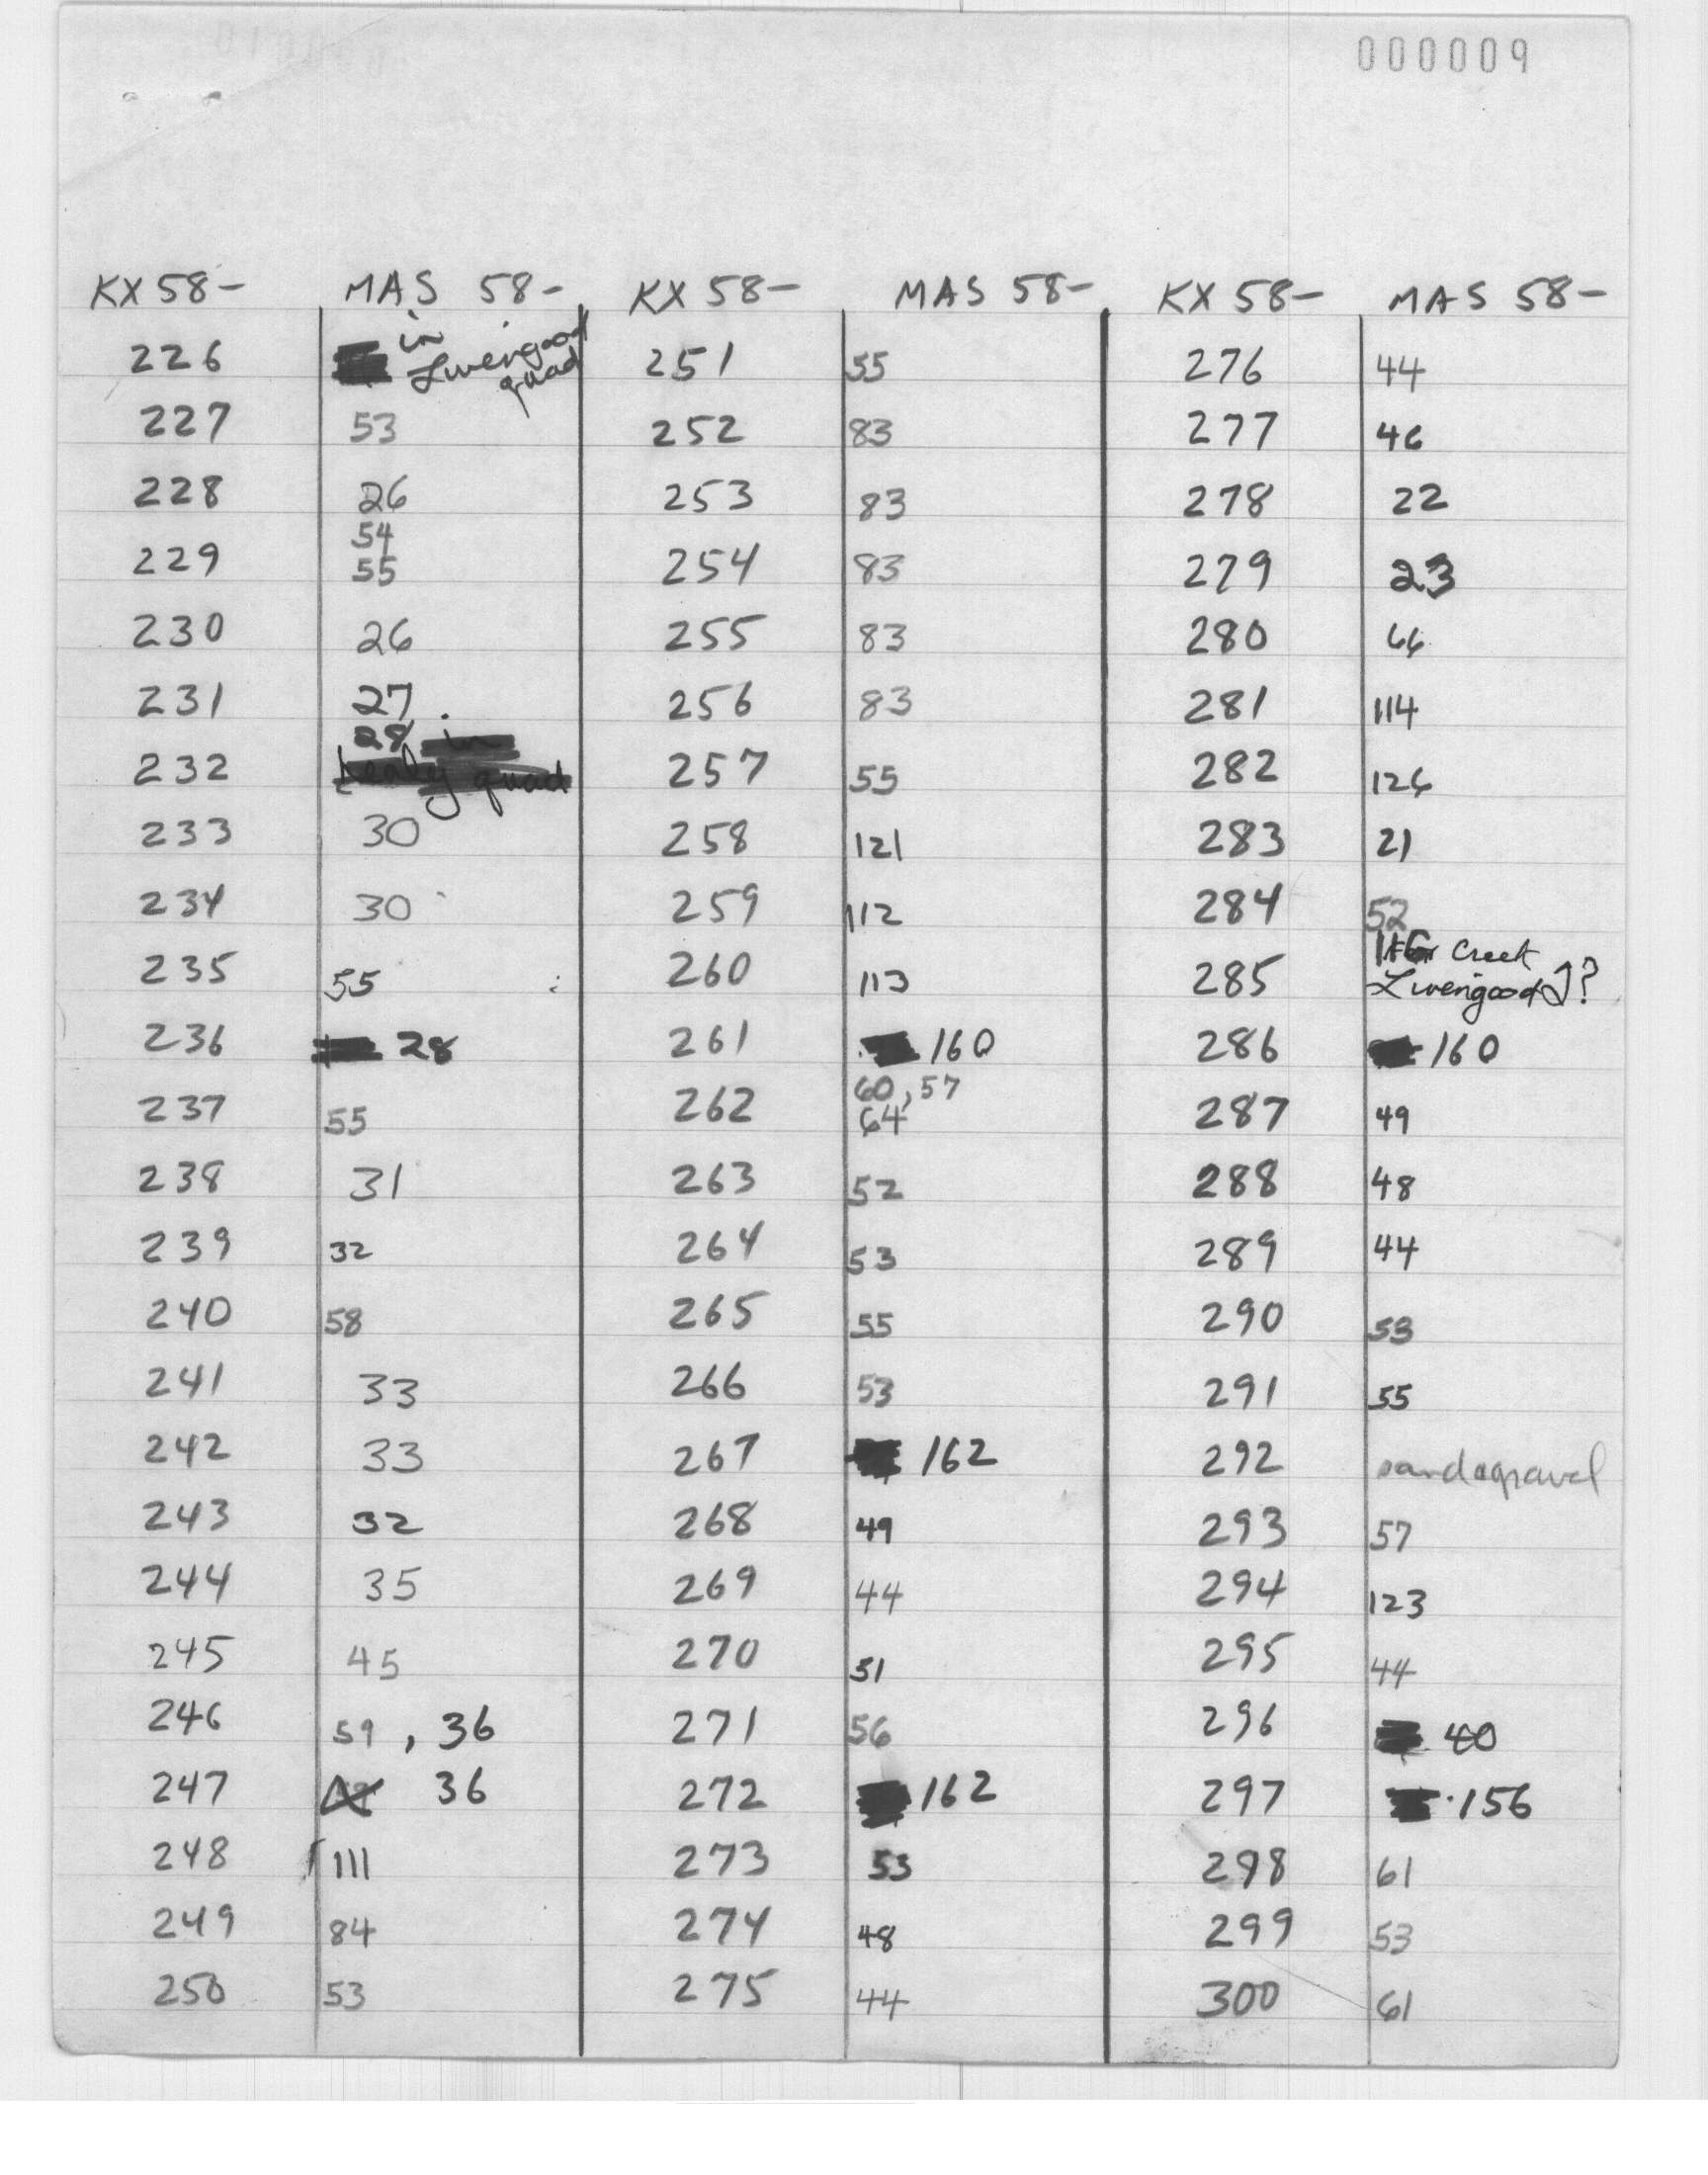 000009
KX 58- MAS 58- KX 58- MAS 58- KX 58- MAS 58-
226 in Livengood quad 251 55 276 44
227 53 252 83 277 46
228 26 253 83 278 22
229 54 55 254 83 279 23
230 26 255 83 280 66
231 27 256 83 281 114
232 28 257 55 282 126
233 30 258 121 283 21
234 30 259 112 284 52
235 55 260 113 285 Creek Livengood ?
236 28 261 160 286 160
237 55 262 60, 57 64 287 49
238 31 263 52 288 48
239 32 264 53 289 44
240 58 265 55 290 53
241 33 266 53 291 55
242 33 267 162 292 sand & gravel
243 32 268 49 293 57
244 35 269 44 294 123
245 45 270 51 295 44
246 59, 36 271 56 296 40
247 36 272 162 297 156
248 111 273 53 298 61
249 84 274 48 299 53
250 53 275 44 300 61